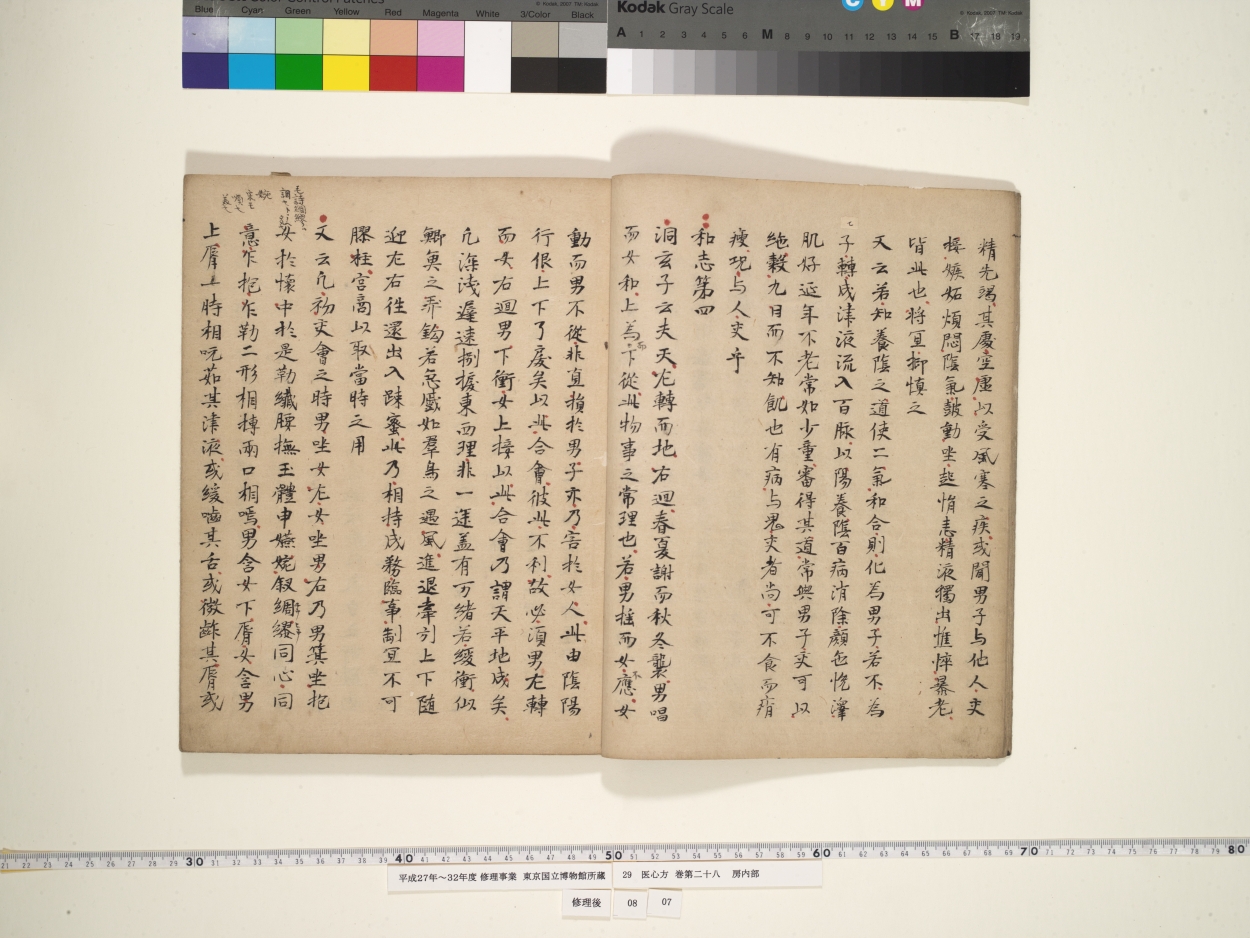 Blue
Cyan
Green
Yellow
Red
Magenta
White
3/Color
Black
© Kodak, 2007 TM: Kodak
Kodak Gray Scale
C Y M
© Kodak, 2007 TM: Kodak
A 1 2 3 4 5 6 M 8 9 10 11 12 13 14 15 B 17 18 19
精先竭其處空虛以受風寒之疾或聞男子与他人交
接嫉妬煩悶陰氣皷動坐起悁恚精液獨出憔悴暴老
皆此也将冝抑慎之
又云若知養陰之道使二氣和合則化為男子若不為
子轉成津液流入百脉以陽養陰百病消除顔色悅澤
肌好延年不老常如少童審得其道常與男子交可以
絶穀九日而不知飢也有病与鬼交者尚可不食而痟
瘦况与人交乎
和志第四
洞玄子云夫天左轉而地右迴春夏謝而秋冬襲男唱
而女和上為而下從此物事之常理也若男揺而女不應女
動而男不從非直損於男子亦乃害於女人此由陰陽
行佷上下了戾矣以此合會彼此不利故必湏男左轉
而女右迴男下衝女上接以此合會乃謂天平地成矣
凢深淺遲速捌捩東西理非一途盖有万緒若緩衝似
鯽魚之弄鈎若急蹙如羣鳥之遇風進退牽引上下随
迎左右往還出入踈宻此乃相持成務臨事制冝不可
膠柱宮商以取當時之用
又云凢初交會之時男坐女左女坐男右乃男箕坐抱
女於懷中於是勒纎腰撫玉體申嬿婉叙綢繆同心同
意乍抱乍勒二形相搏兩口相嗎男含女下脣女含男
上脣一時相吮茹其津液或緩嚙其舌或微齚其脣或
平成27年〜32年度 修理事業 東京国立博物館所蔵
29 医心方 巻第二十八 房内部
修理後 08 07